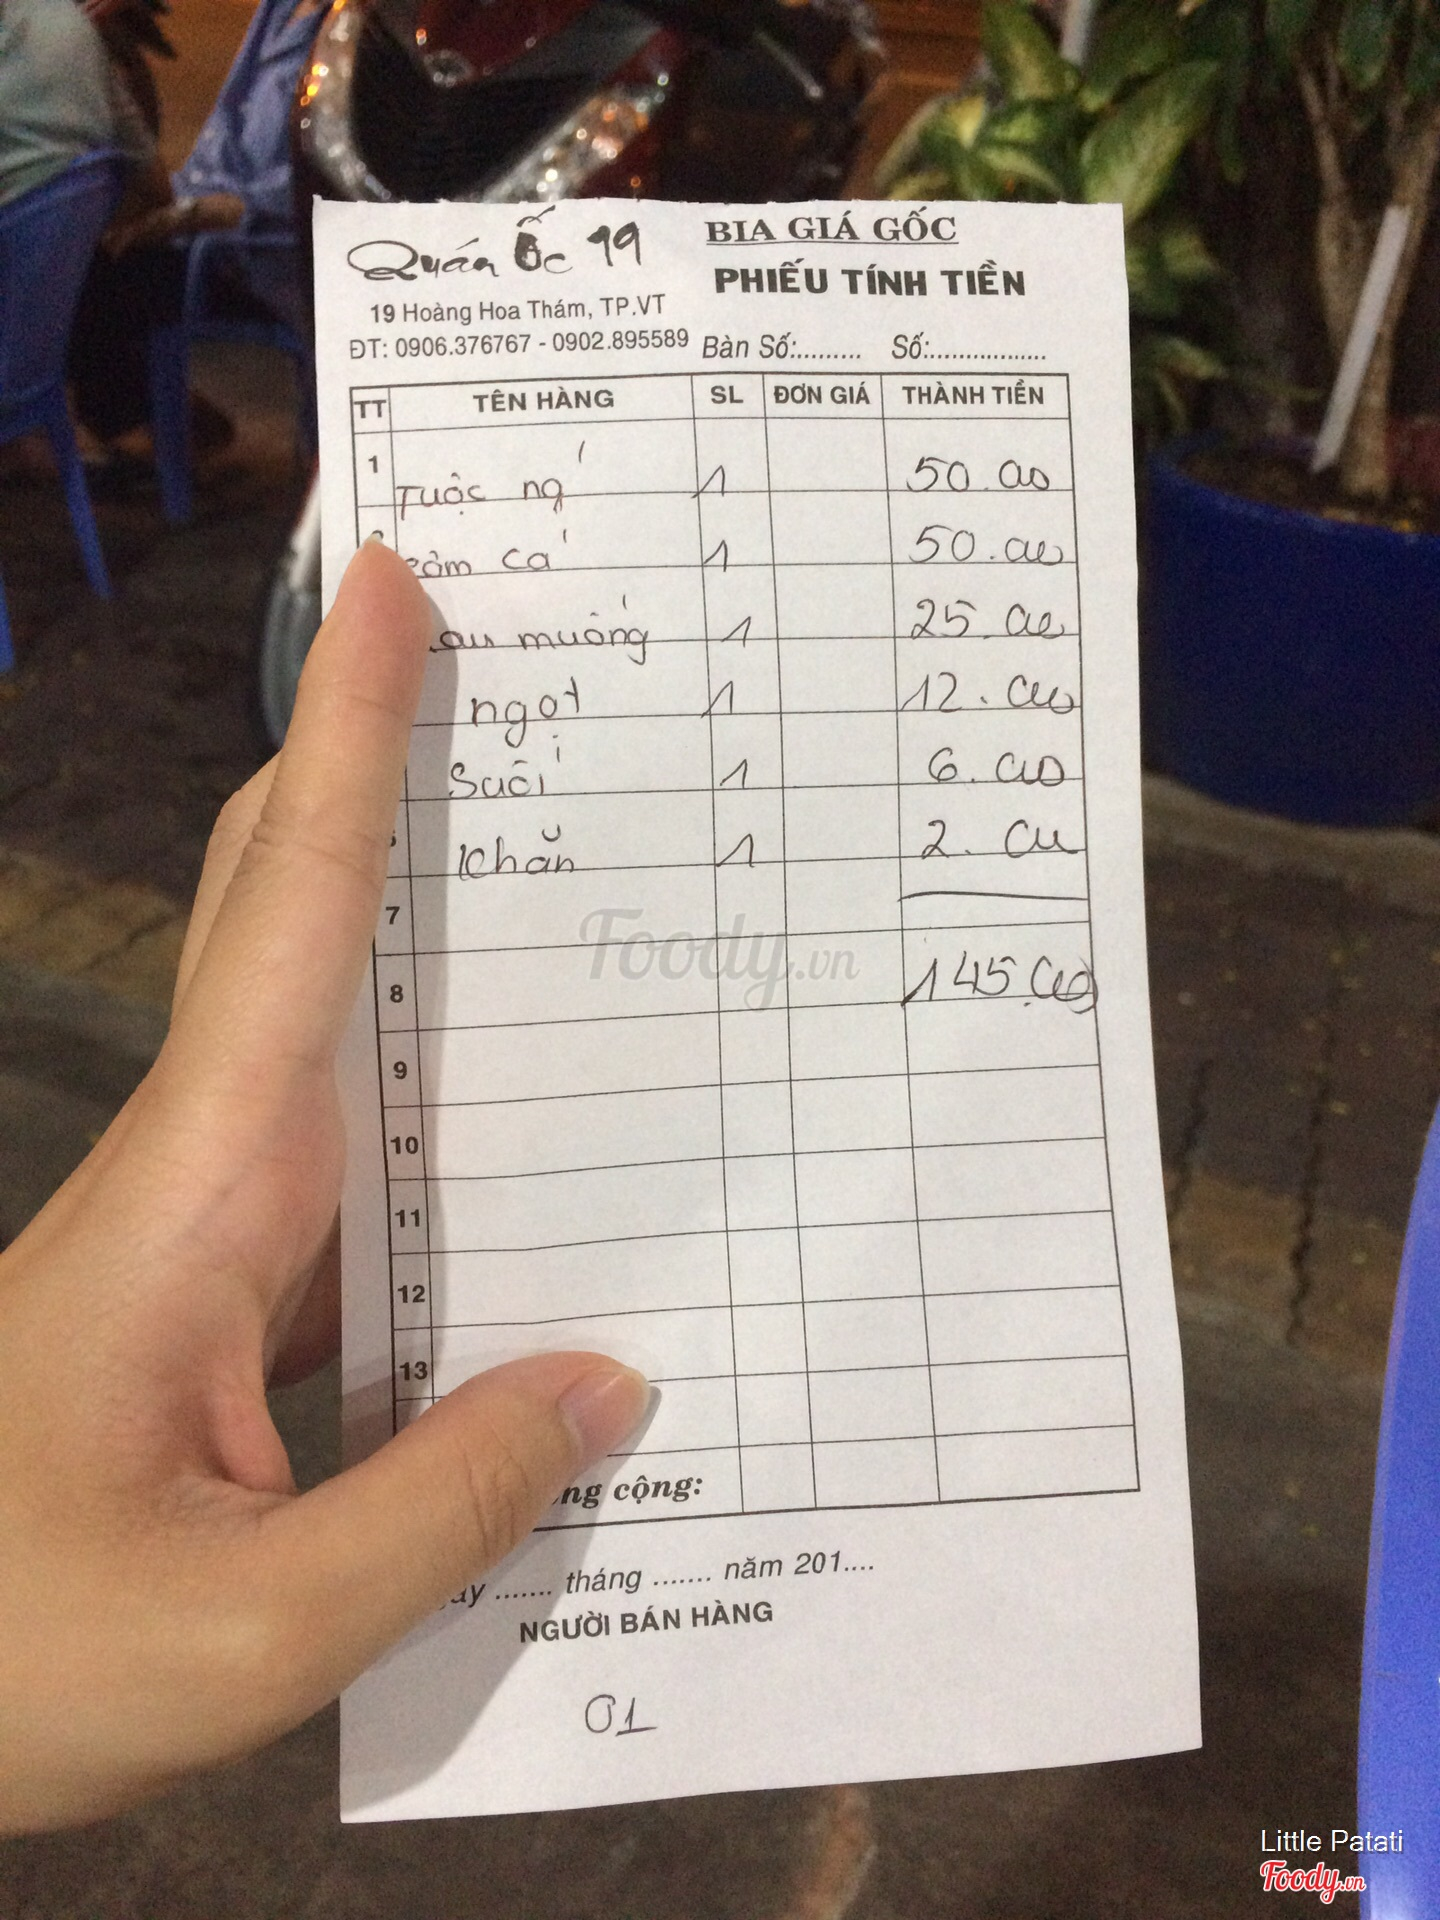 Quán Ốc 19
BIA GIÁ GỐC
PHIẾU TÍNH TIỀN
19 Hoàng Hoa Thám, TP.VT
ĐT: 0906.376767 - 0902.895589
Bàn Số:......... Số:.................
TT TÊN HÀNG SL ĐƠN GIÁ THÀNH TIỀN
1 1 50.000
cá 1 50.000
muống 1 25.000
ngọt 1 12.000
Suối 1 6.000
Khăn 1 2.000
7
8 145.000
9
10
11
12
13
cộng:
....... tháng ....... năm 201....
NGƯỜI BÁN HÀNG
01
Foody.vn
Little Patati
Foody.vn